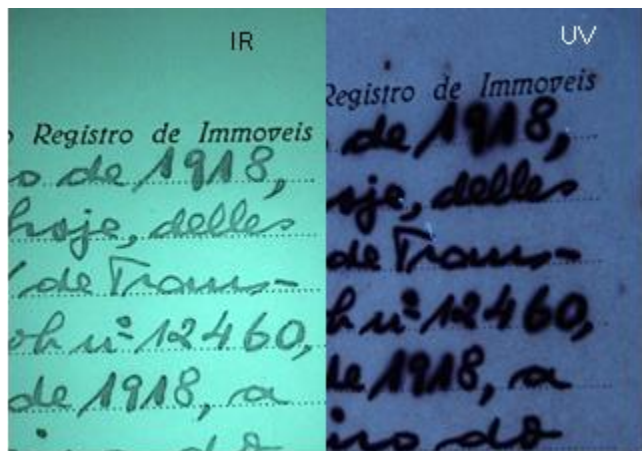 IR
Registro de Immoveis
o de 1918,
hoje, delles
de Trans-
nº 12460,
de 1918, a
do
UV
Registro de Immoveis
de 1918,
hoje, delles
de Trans-
nº 12460,
de 1918, a
do